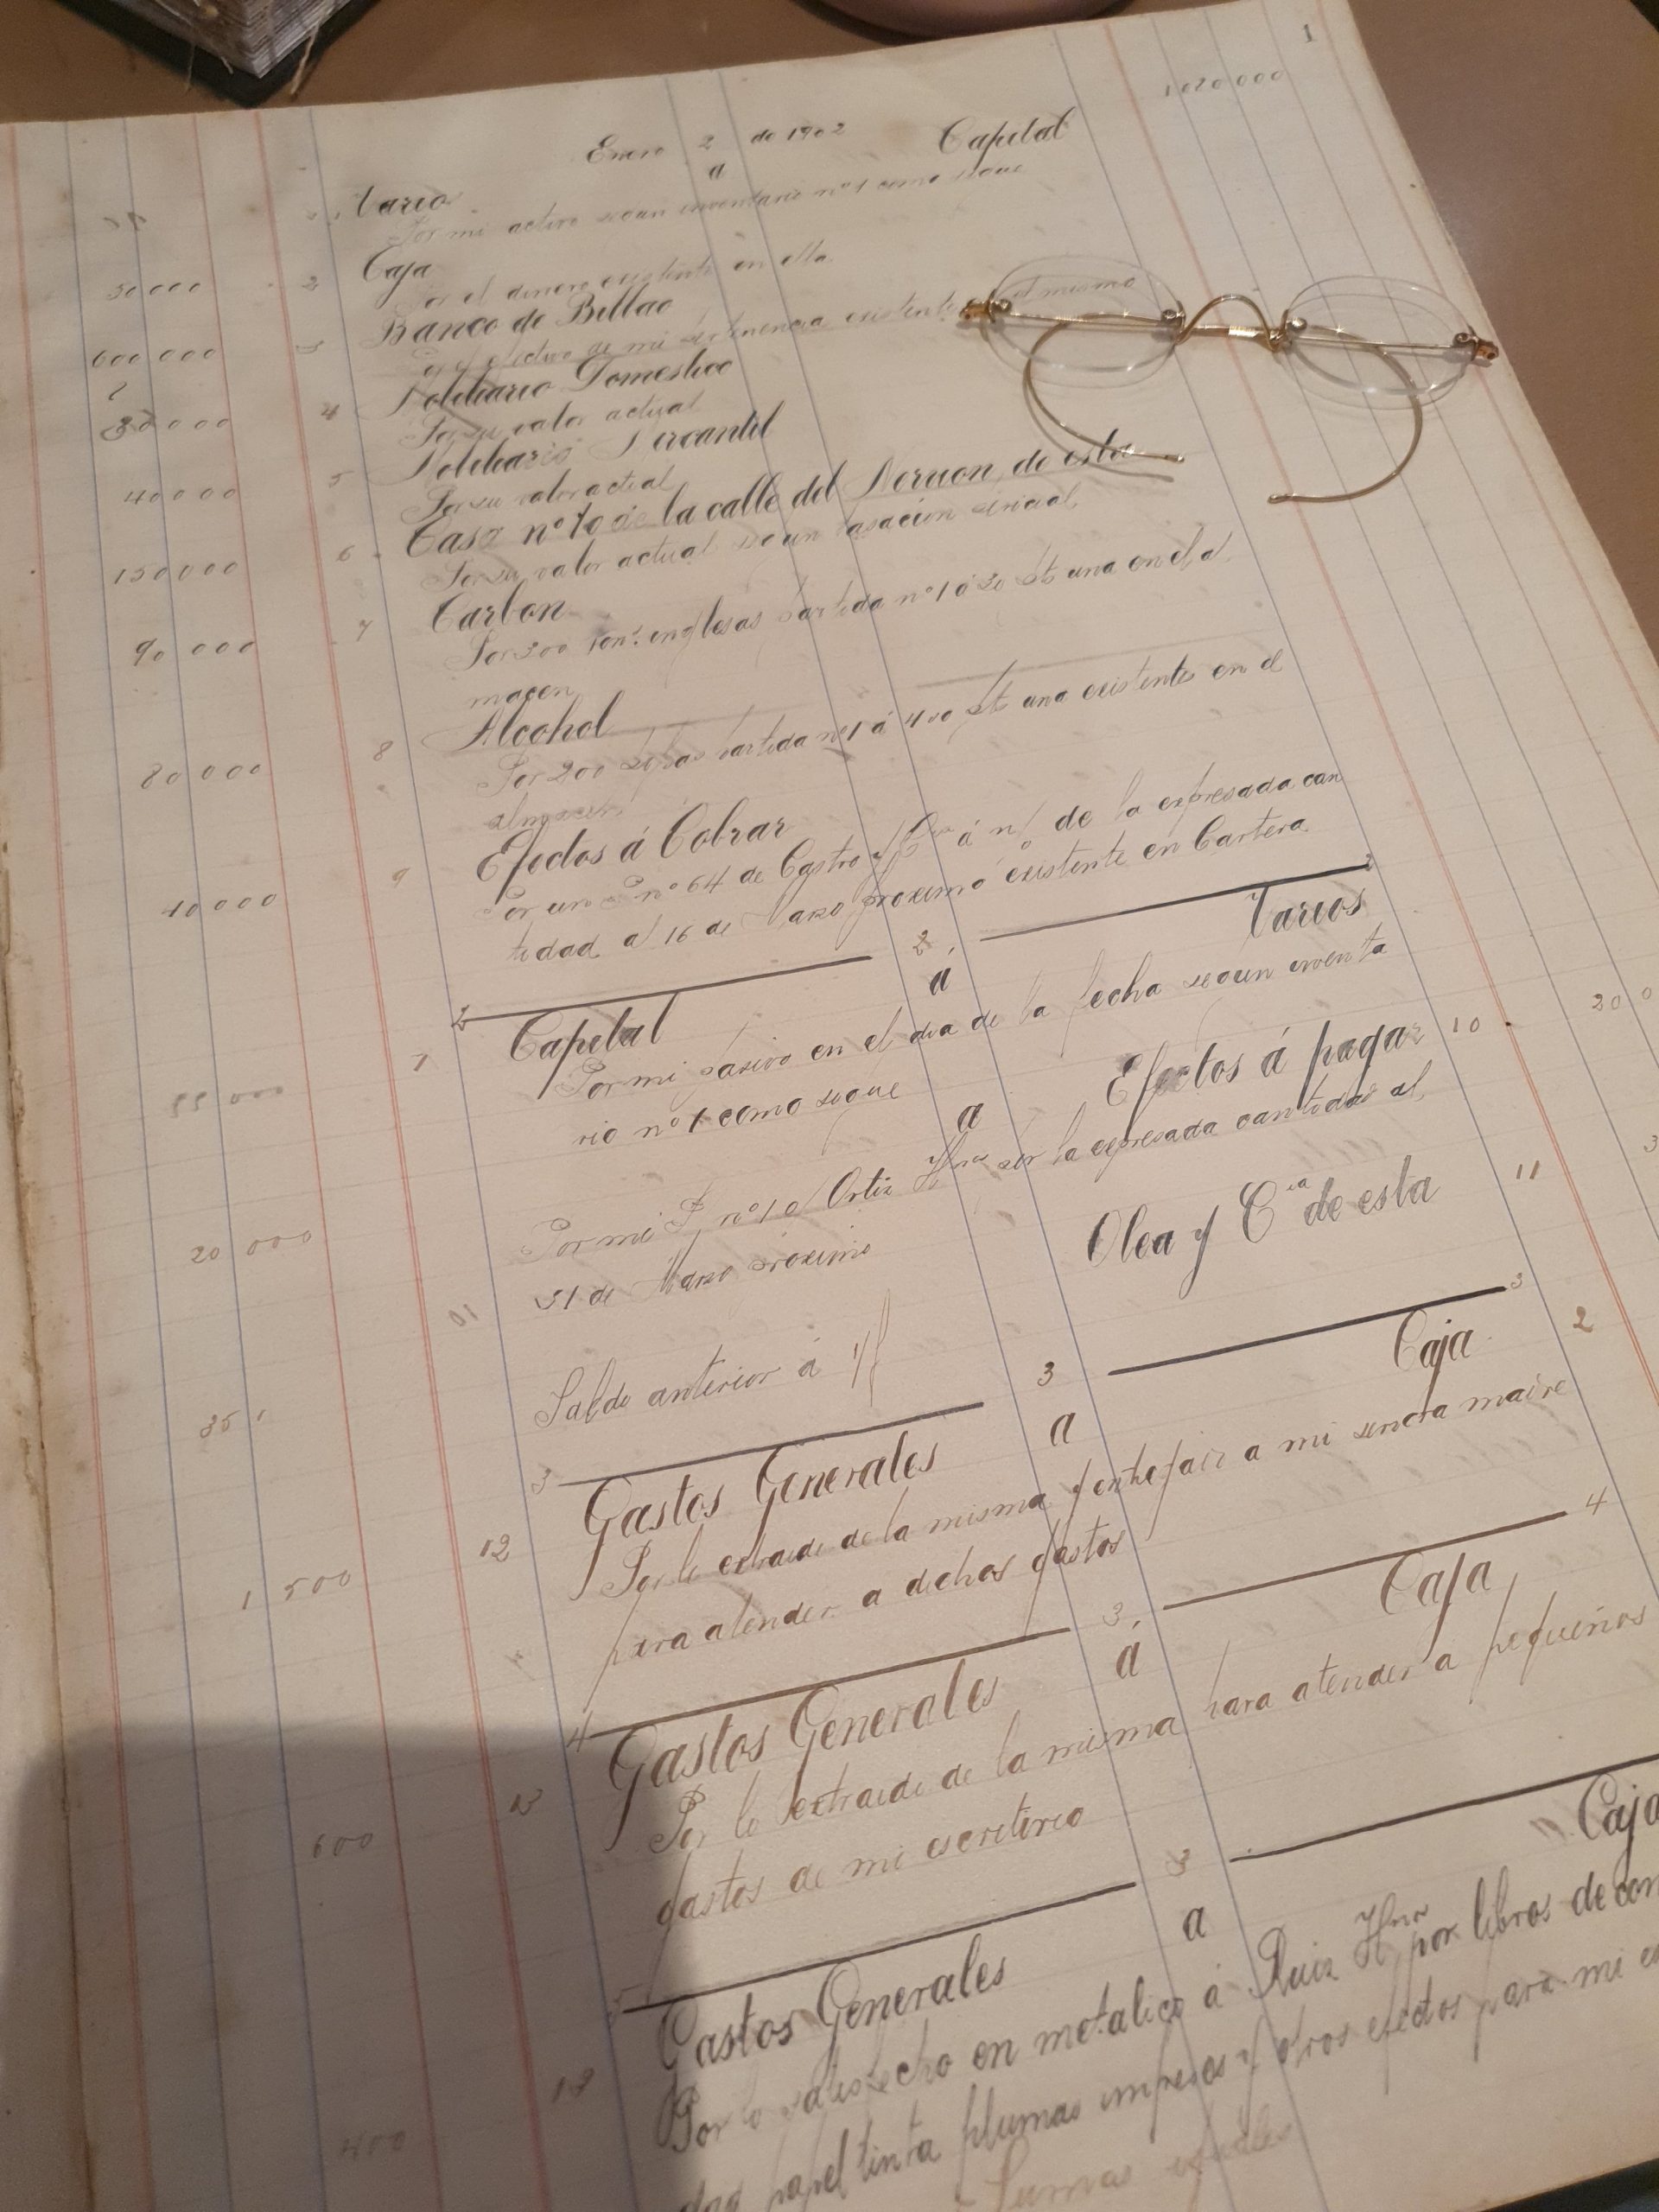 1
1 020 000
Enero 2 de 1902
Varios a Capital
Por mi activo segun inventario nº 1 como sigue
50 000 2 Caja
Por el dinero existente en ella
600 000 3 Banco de Bilbao
efectivo de mi pertenencia existente en el mismo
30 000 4 Mobiliario Domestico
Por su valor actual
40 000 5 Mobiliario Mercantil
Por su valor actual
150 000 6 Casa nº 10 de la calle del Nervion, de esta
Por su valor actual segun tasación
90 000 7 Carbon
Por 300 tons. inglesas partida nº 1 á 30 una en el al
macen
80 000 8 Alcohol
Por 200 pipas partida nº 1 á 400 una existentes en el
almacen
10 000 9 Efectos á Cobrar
Por un P nº 64 de Castro y Cia á n/ de la expresada can
tidad al 16 de Marzo proximo existente en Cartera
2 2 2
1 Capital á Varios
55 000 Por mi pasivo en el dia de la fecha segun inventa
rio nº 1 como sigue
a Efectos á pagar 10 20 0
20 000 Por mi P nº 1 o/ Ortiz Hnos por la expresada cantidad al
31 de Marzo proximo
Olea y Cia de esta 11 3
35 Saldo anterior á
3 3 3
12 Gastos Generales a Caja 2
1 500 Por lo extraido de la misma y entregado a mi señora madre
para atender a dichos gastos
4 3 4
13 Gastos Generales á Caja
600 Por lo extraido de la misma para atender a pequeños
gastos de mi escritorio
5 3
13 Gastos Generales a Caja
400 Por lo satisfecho en metalico á Ruiz Hnos por libros de con
papel tinta plumas impresos y otros efectos para mi es
Sumas iguales